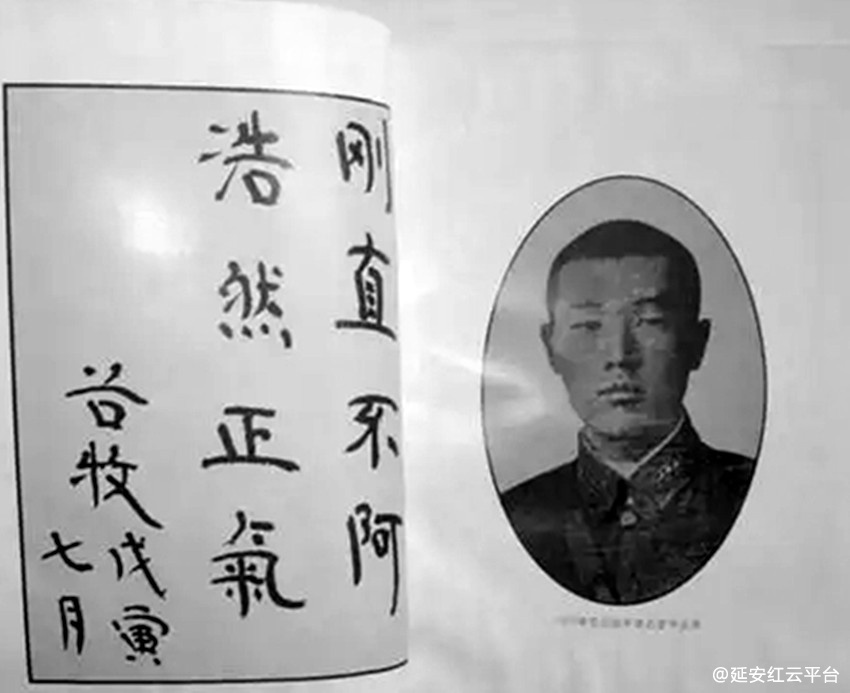 刚直不阿
浩然正氣
谷牧戊寅
七月
@延安红云平台